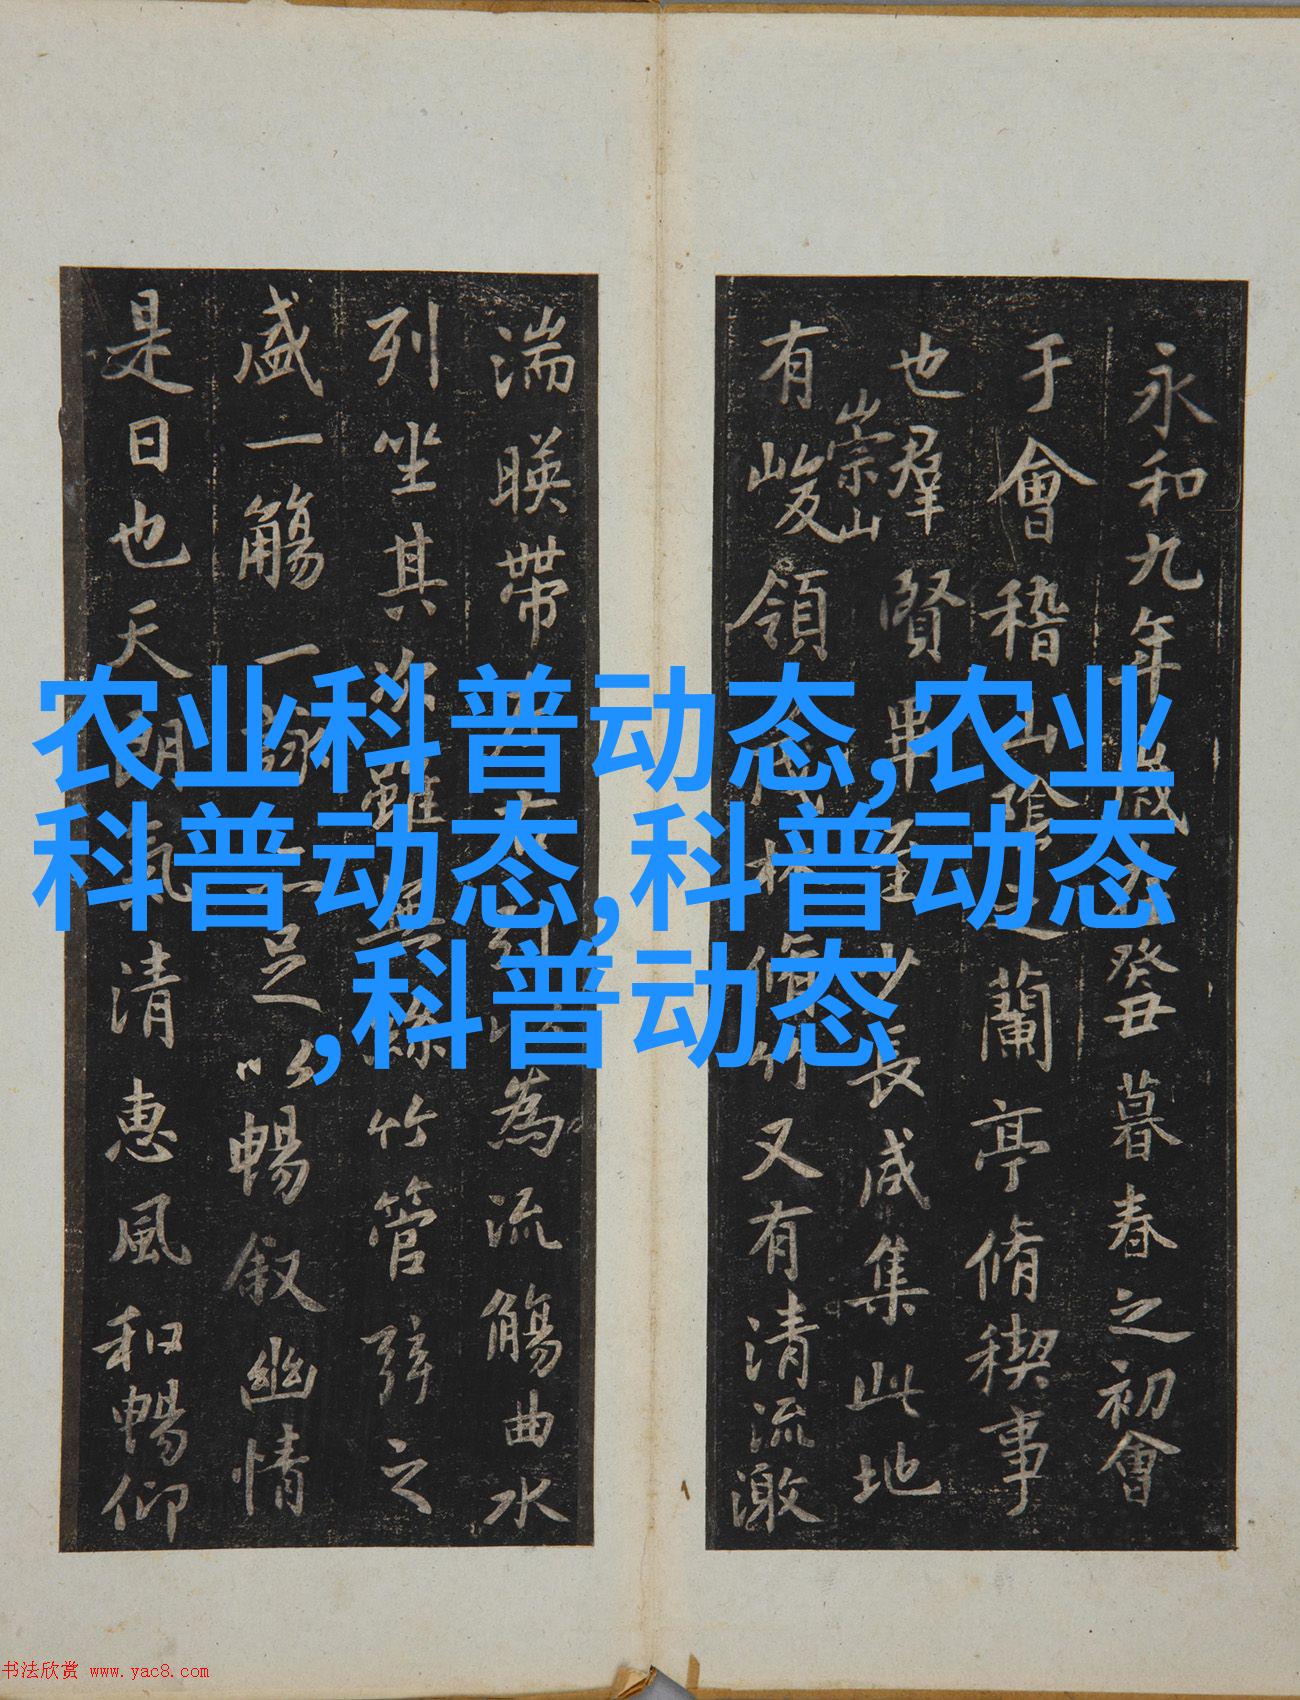 永和九年歲癸丑暮春之初會
于會稽山陰之蘭亭脩禊事
也羣賢畢至少長咸集此地
崇山
有峻領林脩竹又有清流激
湍暎帶為流觴曲水
列坐其次雖無絲竹管弦之
盛一觴一詠足以暢叙幽情
是日也天朗氣清惠風和暢仰
农业科普动态,农业
科普动态,科普动态
,科普动态
书法欣赏 www.yac8.com